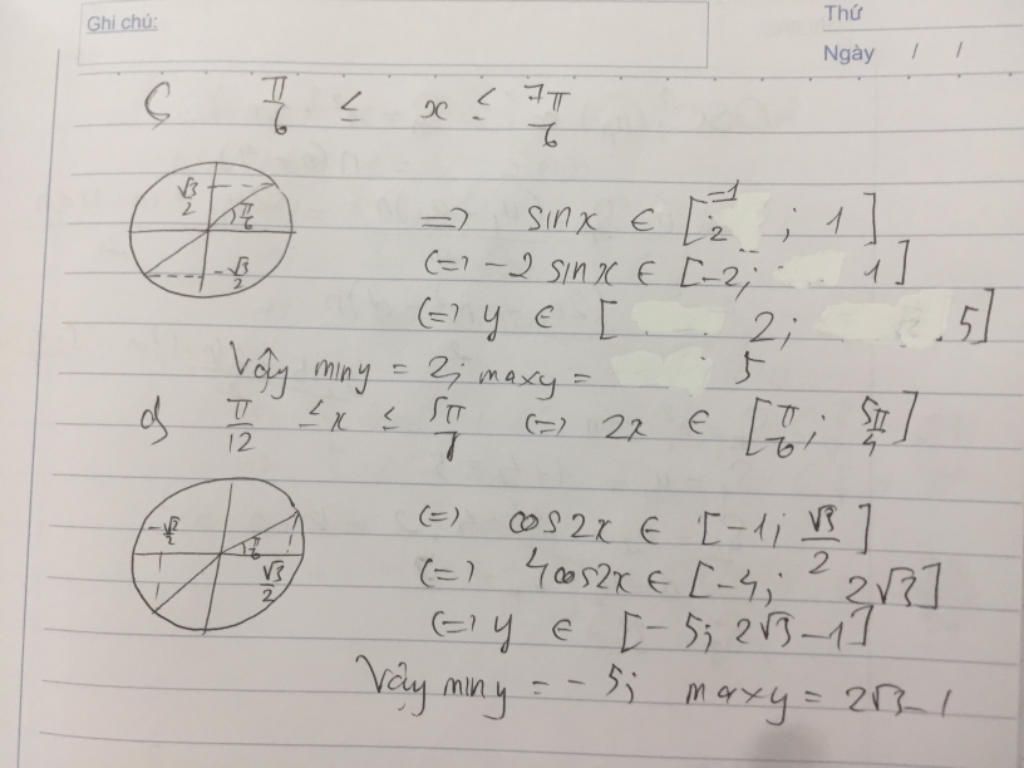 Ghi chú:
Thứ
Ngày / /
c) π/6 ≤ x ≤ 7π/6
√3/2
π/6
-√3/2
=> sinx ∈ [-1/2 ; 1]
(=) -2 sinx ∈ [-2; 1]
(=) y ∈ [ 2; 5]
Vậy miny = 2; maxy = 5
d) π/12 ≤ x ≤ 5π/8 (=) 2x ∈ [π/6; 5π/4]
-√2/2
π/6
√3/2
(=) cos2x ∈ [-1; √3/2]
(=) 4cos2x ∈ [-4; 2√3]
(=) y ∈ [-5; 2√3-1]
Vậy miny = -5; maxy = 2√3-1